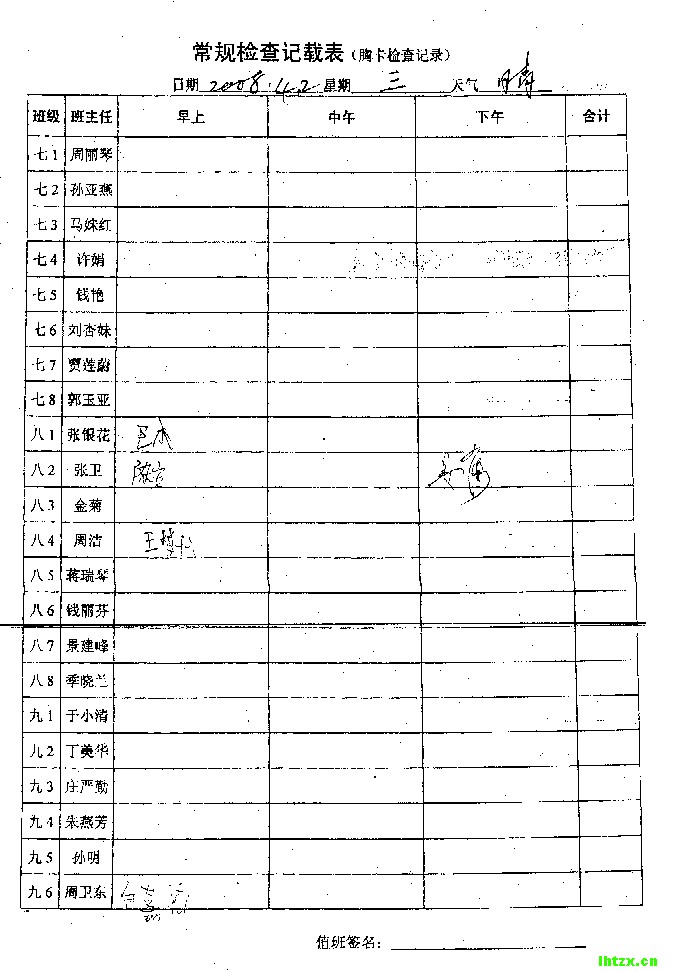 常规检查记载表（胸卡检查记录）
日期 2008.4.2 星期 三 天气 晴
班级 班主任 早上 中午 下午 合计
七1 周丽琴
七2 孙亚燕
七3 马姝红
七4 许娟
七5 钱艳
七6 刘杏妹
七7 贾莲蔚
七8 郭玉亚
八1 张银花
八2 张卫
八3 金菊
八4 周洁
八5 蒋瑞琴
八6 钱丽芬
八7 景建峰
八8 季晓兰
九1 于小清
九2 丁美华
九3 庄严勤
九4 朱燕芳
九5 孙明
九6 周卫东
值班签名：
lhtzx.cn